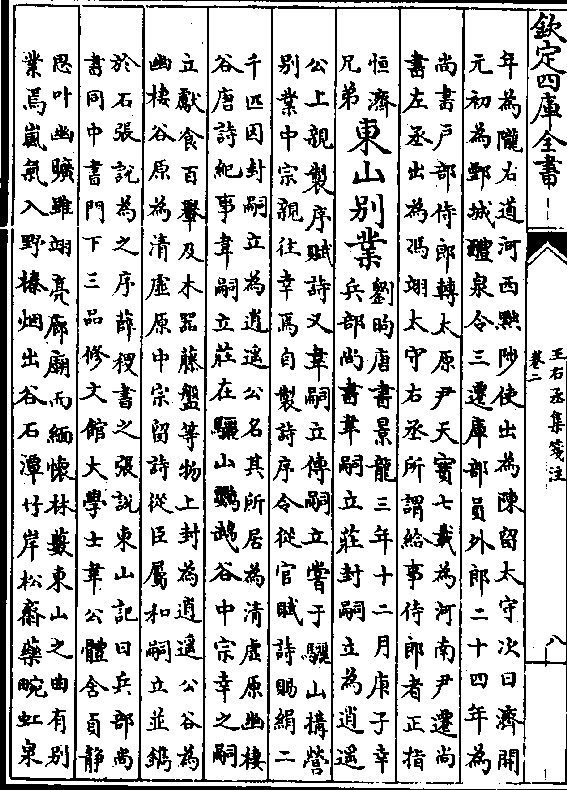 欽定四庫全書
王右丞集箋注
卷二
八
年為隴右道河西黜陟使出為陳留太守次曰濟開
元初為鄄城醴泉令三遷庫部員外郎二十四年為
尚書戸部侍郎轉太原尹天寶七載為河南尹遷尚
書左丞出為馮翊太守右丞所謂給事侍郎者正指
恒濟
兄弟
東山别業
劉昫唐書景龍三年十二月庚子幸
兵部尚書韋嗣立莊封嗣立為逍遥
公上親製序賦詩又韋嗣立傳嗣立嘗于驪山構營
别業中宗親往幸焉自製詩序令從官賦詩賜絹二
千匹因封嗣立為逍遥公名其所居為清虛原幽棲
谷唐詩紀事韋嗣立莊在驪山鸚鵡谷中宗幸之嗣
立獻食百轝及木器藤盤等物上封為逍遥公谷為
幽棲谷原為清虛原中宗留詩從臣屬和嗣立並鐫
於石張說為之序薛稷書之張說東山記曰兵部尚
書同中書門下三品修文館大學士韋公體含貞静
思叶幽曠雖翊亮廊廟而緬懷林藪東山之曲有别
業焉嵐氣入野榛烟出谷石潭竹岸松齋藥畹虹泉